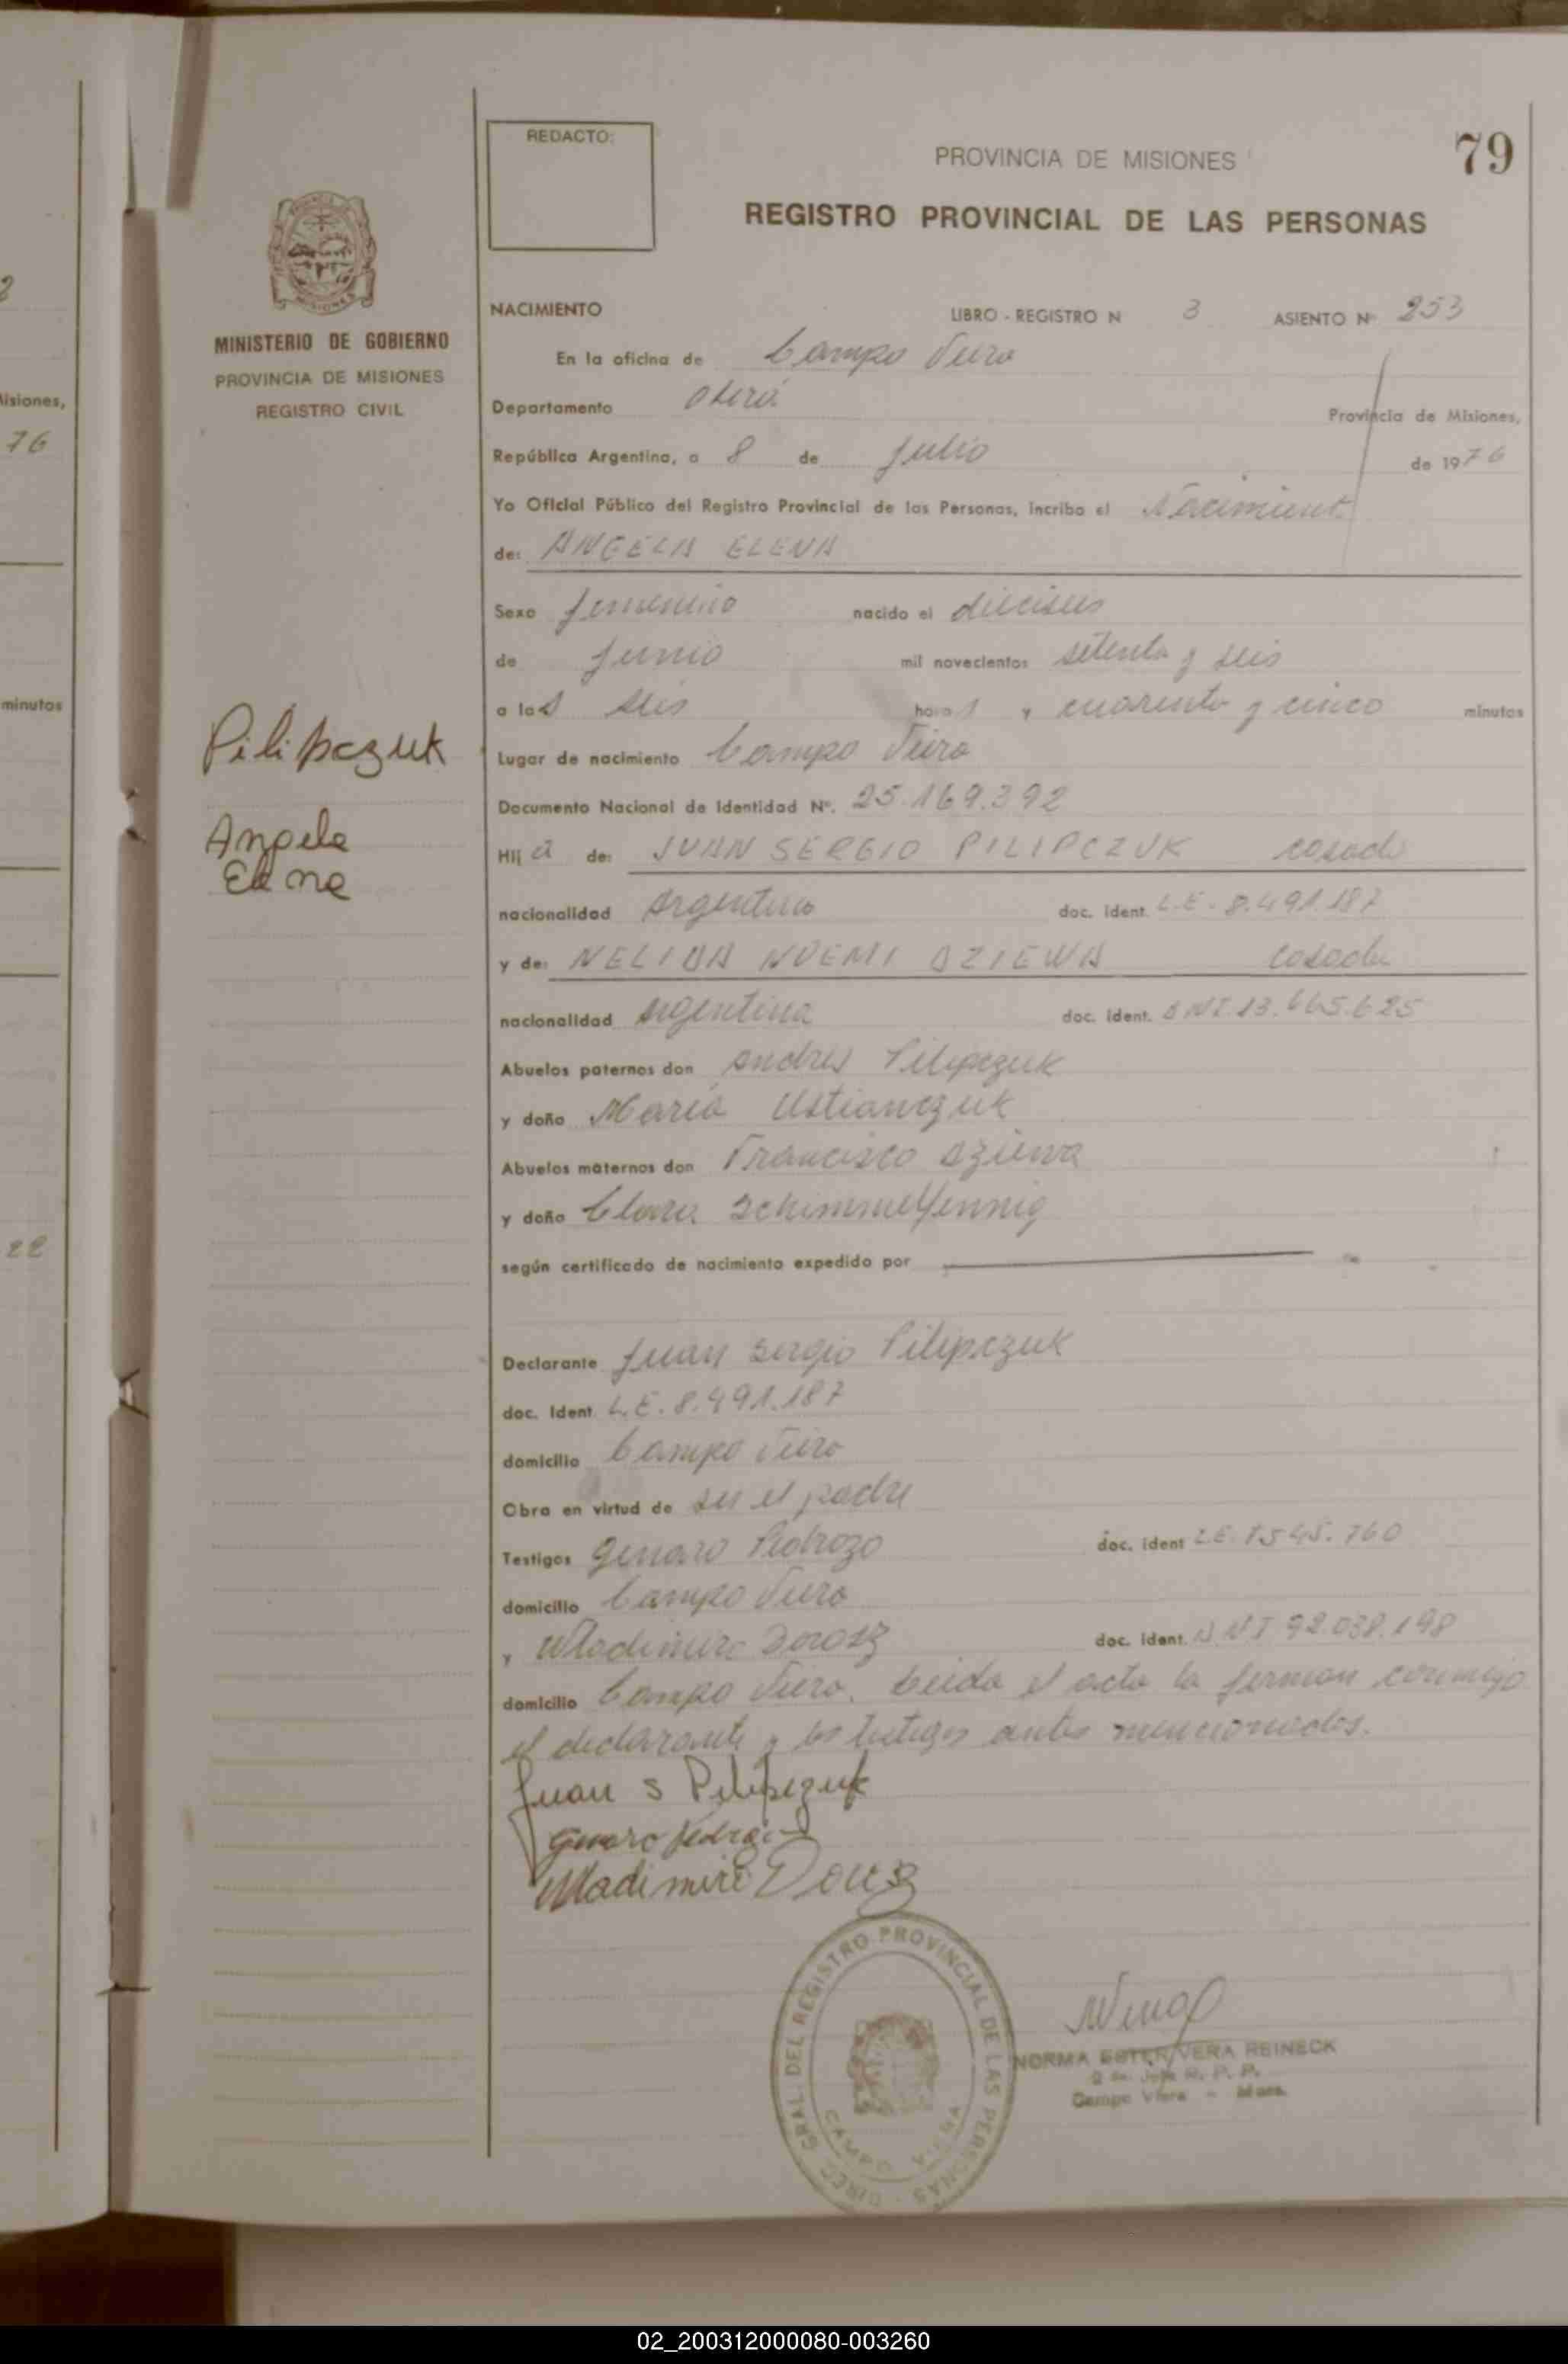 REDACTO:
PROVINCIA DE MISIONES
79
REGISTRO PROVINCIAL DE LAS PERSONAS
MINISTERIO DE GOBIERNO
PROVINCIA DE MISIONES
REGISTRO CIVIL
NACIMIENTO LIBRO - REGISTRO N 3 ASIENTO Nº 253
En la oficina de Campo Viera
Departamento Oberá Provincia de Misiones,
República Argentina, a 8 de Julio de 1976
Yo Oficial Público del Registro Provincial de las Personas, incribo el Nacimiento
de: ANGELA ELENA
Sexo femenino nacido el dieciseis
de Junio mil novecientos setenta y seis
a las seis horas y cuarenta y cinco minutos
Lugar de nacimiento Campo Viera
Documento Nacional de Identidad Nº. 25.169.392
Hija de: JUAN SERGIO PILIPCZUK casado
nacionalidad Argentino doc. ident. L.E. 8.491.187
y de: NELIDA NOEMI DZIEWA casada
nacionalidad Argentina doc. ident. DNI. 13.665.625
Abuelos paternos don Andres Pilipczuk
y doña Maria Ustianczuk
Abuelos maternos don Francisco Dziewa
y doña Clara Schimmelfennig
según certificado de nacimiento expedido por
Declarante Juan Sergio Pilipczuk
doc. Ident. L.E. 8.491.187
domicilio Campo Viera
Obra en virtud de ser el padre
Testigos Genaro Pedrozo doc. ident L.E. 7.545.760
domicilio Campo Viera
y Wladimiro doc. ident. DNI 92.038.198
domicilio Campo Viera. Leida el acta la firman conmigo
el declarante y los testigos antes mencionados.
Juan S Pilipczuk
Genaro Pedrozo
Wladimiro
Pilipczuk
Angela
Elena
DIREC. GRAL. DEL REGISTRO PROVINCIAL DE LAS PERSONAS
CAMPO VIERA
NORMA ESTER VERA REINECK
Jefe R. P. P.
Campo Viera - Mnes.
isiones,
76
minutos
22
02_200312000080-003260